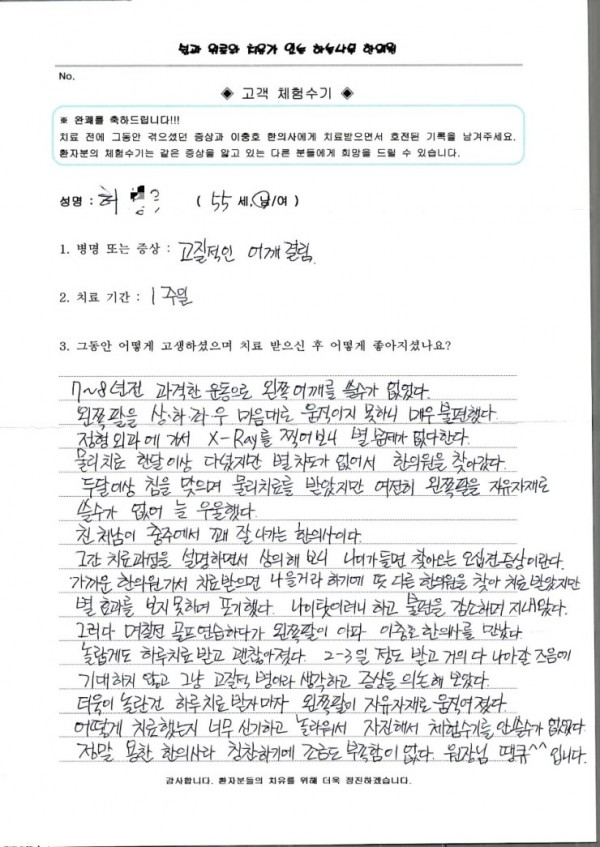 No.
◈ 고객 체험수기 ◈
※ 완쾌를 축하드립니다!!!
치료 전에 그동안 겪으셨던 증상과 이충호 한의사에게 치료받으면서 호전된 기록을 남겨주세요.
환자분의 체험수기는 같은 증상을 앓고 있는 다른 분들에게 희망을 드릴 수 있습니다.
성명 : 허 ( 55 세, 남/여 )
1. 병명 또는 증상 : 고질적인 어깨결림.
2. 치료 기간 : 1주일
3. 그동안 어떻게 고생하셨으며 치료 받으신 후 어떻게 좋아지셨나요?
7~8년전 과격한 운동으로 왼쪽어깨를 쓸수가 없었다.
왼쪽팔을 상·하·좌·우 마음대로 움직이지 못하니 매우 불편했다.
정형외과에 가서 X-Ray를 찍어보니 별 문제가 없다한다.
물리치료 한달이상 다녔지만 별 차도가 없어서 한의원을 찾아갔다.
두달이상 침을 맞으며 물리치료를 받았지만 여전히 왼쪽팔을 자유자재로
쓸수가 없어 늘 우울했다.
친 처남이 충주에서 꽤 잘나가는 한의사이다.
그간 치료과정을 설명하면서 상의해 보니 나이가들면 찾아오는 오십견증상이란다.
가까운 한의원가서 치료받으면 나을거라 하기에 또 다른 한의원을 찾아 치료받았지만
별 효과를 보지못하여 포기했다. 나이탓이려니 하고 불편을 감소하며 지내왔다.
그러다 며칠전 골프연습하다가 왼쪽팔이 아파 이충호한의사를 만났다.
놀랍게도 하루치료 받고 괜찮아졌다. 2-3일 정도 받고 거의 다 나아갈 즈음에
기대하지 않고 그냥 고질적 병이라 생각하고 증상을 의논해 보았다.
더욱이 놀란건 하루치료 받자마자 왼쪽팔이 자유자재로 움직여졌다.
어떻게 치료했는지 너무 신기하고 놀라워서 자진해서 체험수기를 안쓸수가 없었다.
정말 용한 한의사라 칭찬하기에 조금도 부족함이 없다. 원장님 땡큐^^입니다.
감사합니다. 환자분들의 치유를 위해 더욱 정진하겠습니다.